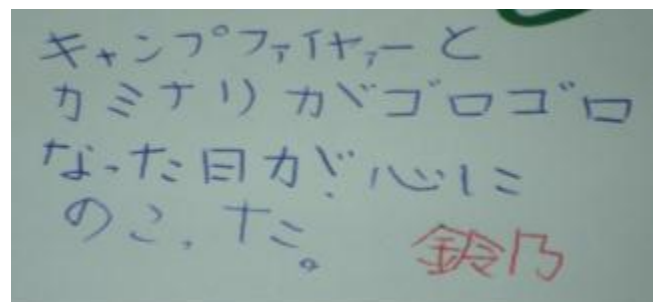 キャンプファイヤーと
カミナリがゴロゴロ
なった日が心に
のこった。
鈴乃